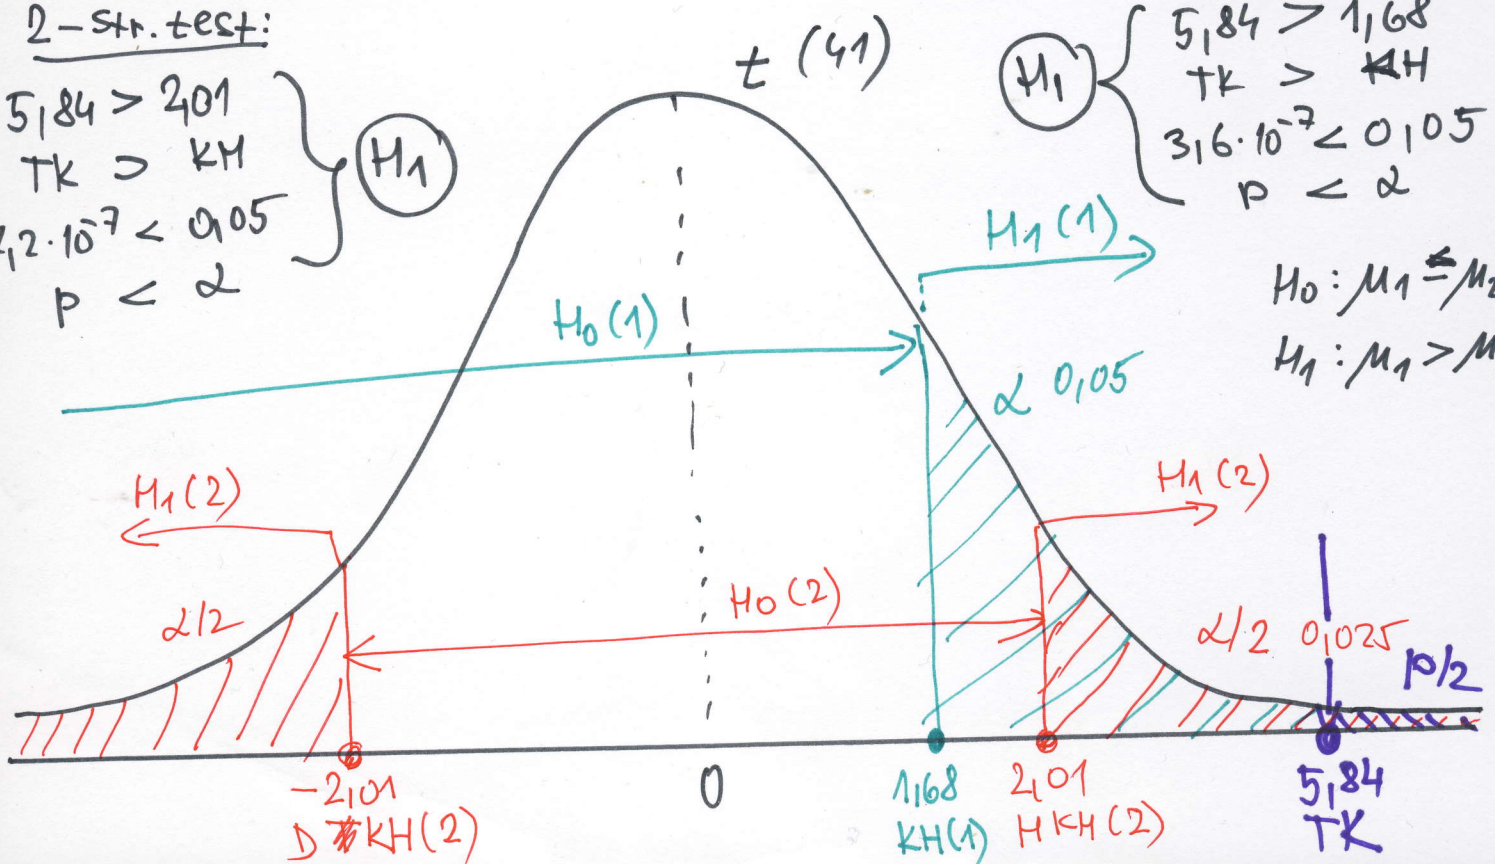 2-str. test:
5,84 > 2,01
TK > KH
7,2·10⁻⁷ < 0,05
p < α
H1
t (41)
H1
5,84 > 1,68
TK > KH
3,6·10⁻⁷ < 0,05
p < α
H0 : μ1 ≤ μ2
H1 : μ1 > μ
H1 (1)
H0 (1)
α 0,05
H1 (2)
H1 (2)
H0 (2)
α/2
α/2 0,025
p/2
-2,01
D KH (2)
0
1,68
KH (1)
2,01
H KH (2)
5,84
TK